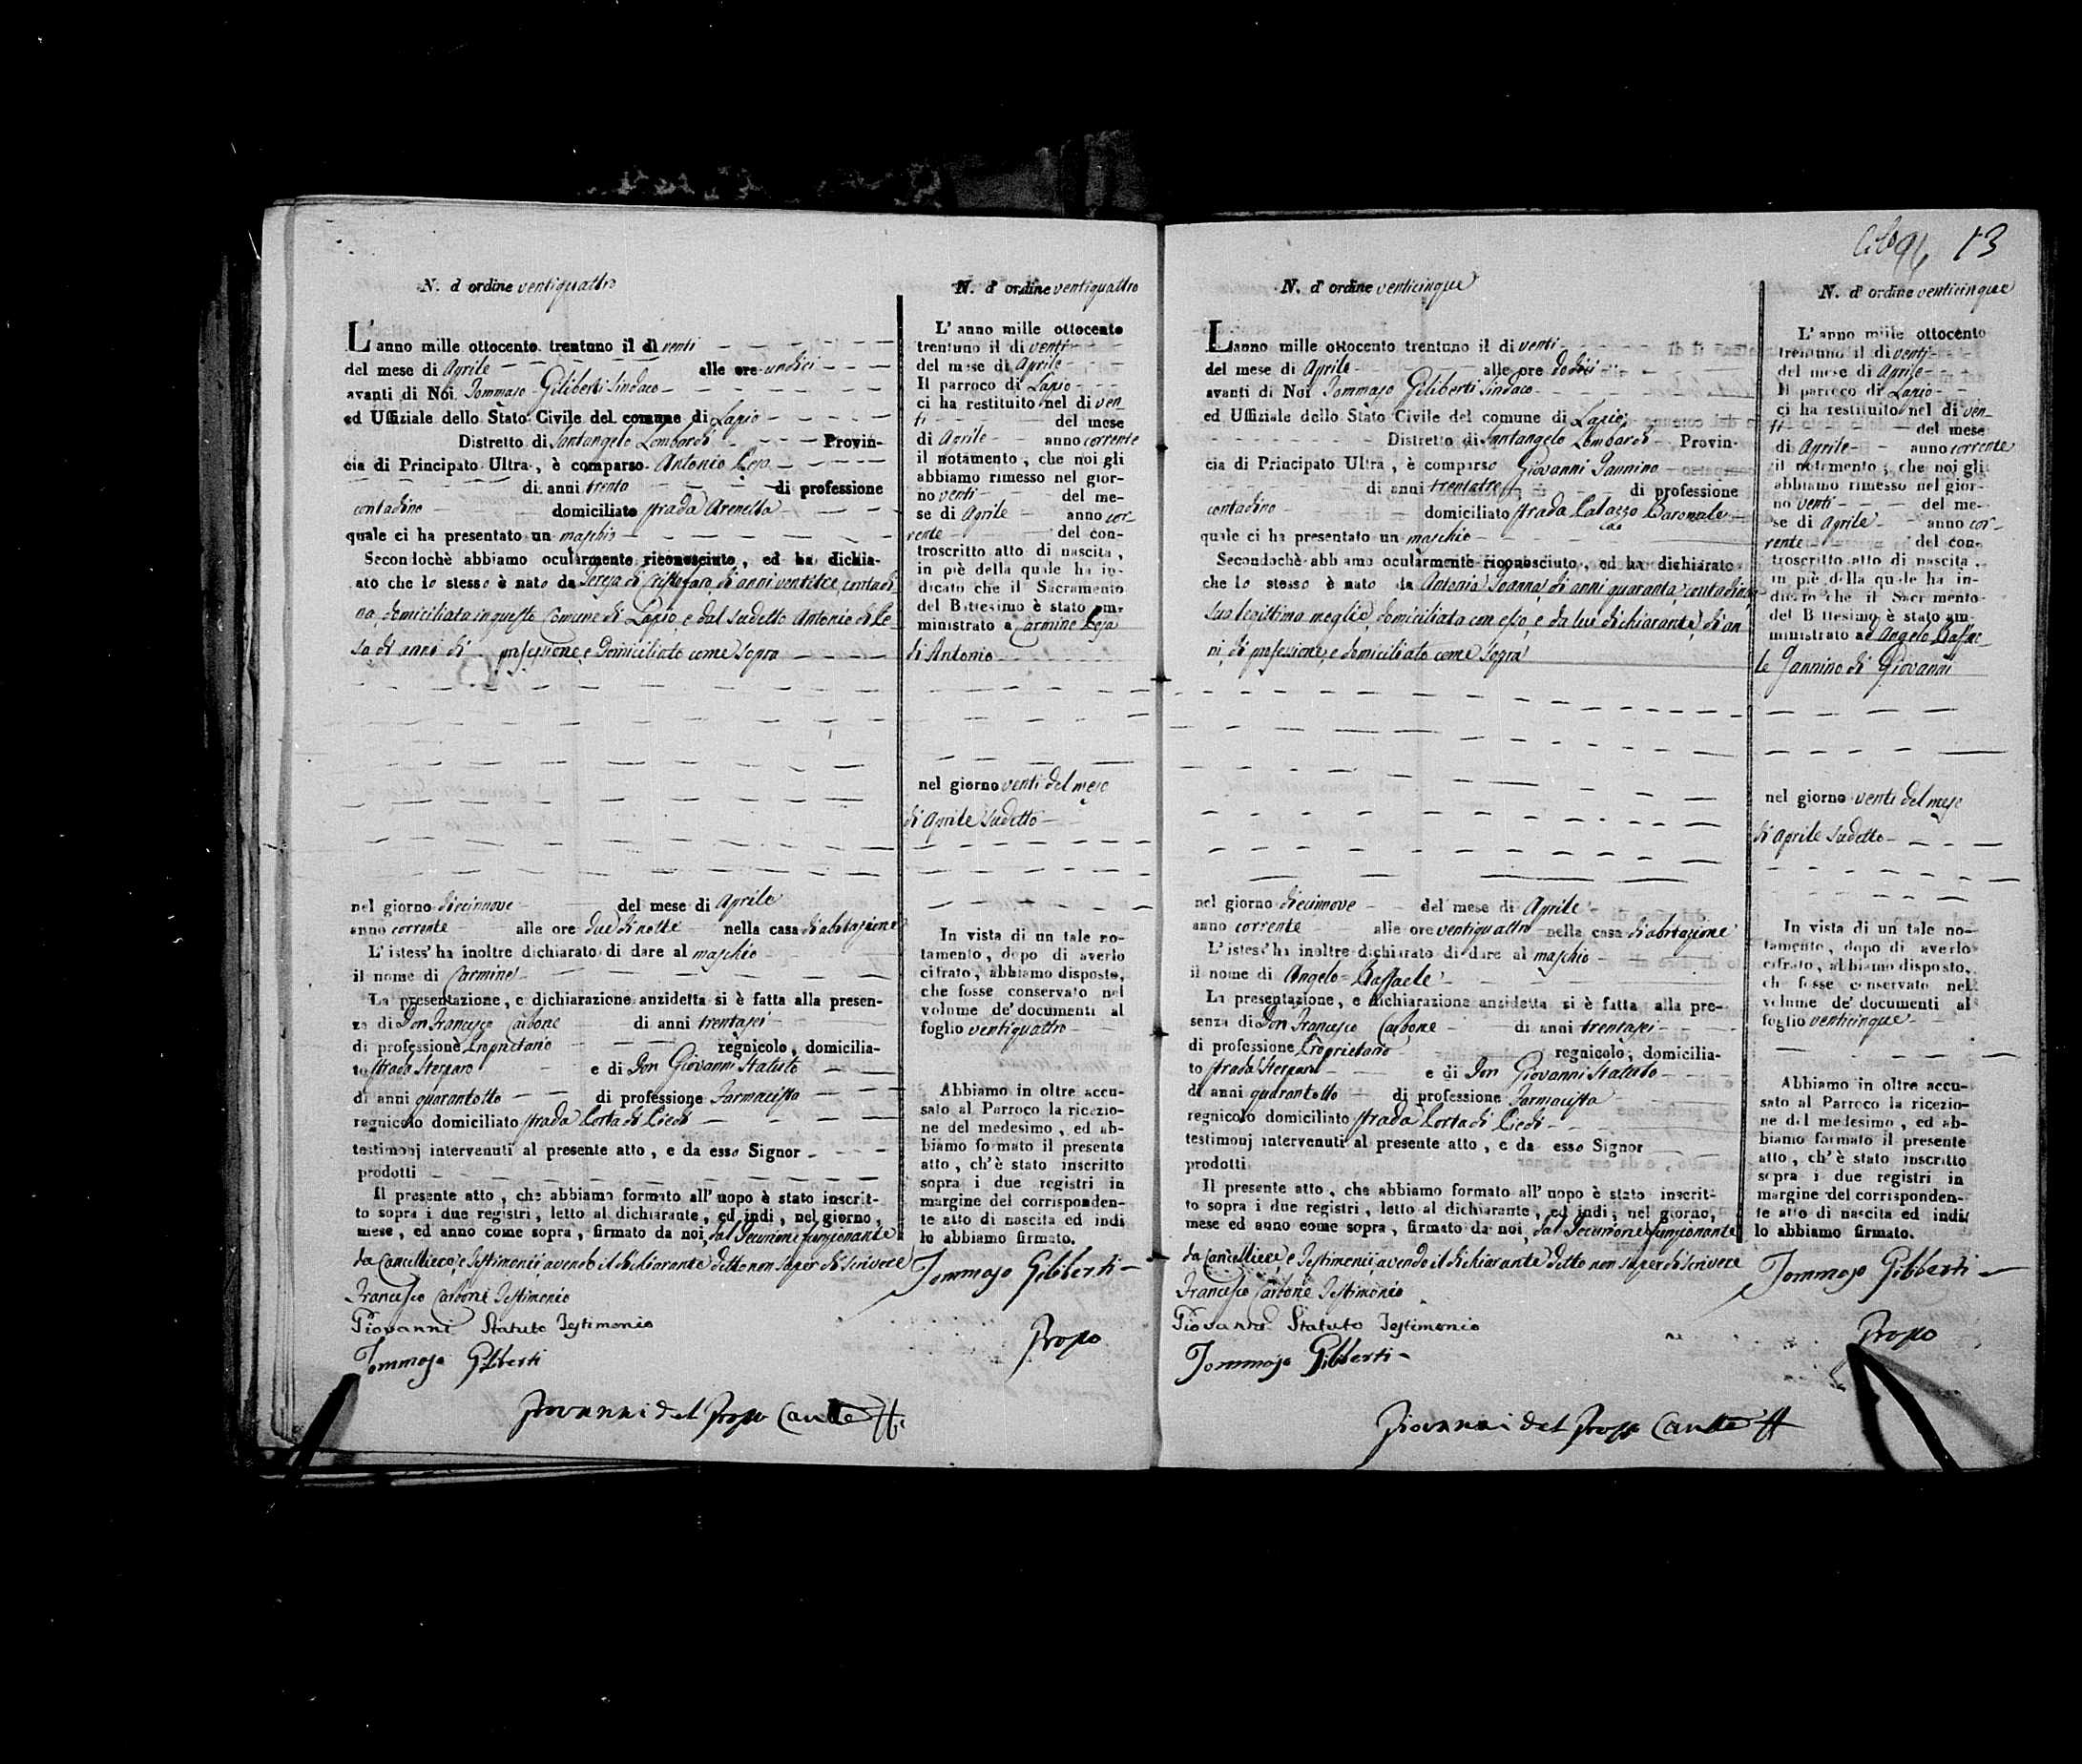 N. d' ordine ventiquattro
L'anno mille ottocento trentuno il di venti
del mese di Aprile alle ore undici
avanti di Noi Tommaso Giliberti Sindaco
ed Uffiziale dello Stato Civile del comune di Lapio
Distretto di Santangelo Lombardi Provin-
cia di Principato Ultra, è comparso Antonio Lepo
di anni trenta di professione
contadino domiciliato strada Arenella
quale ci ha presentato un maschio
Secondochè abbiamo ocularmente riconosciuto, ed ha dichia-
ato che lo stesso è nato da Teresa di Cristofaro, di anni ventitre, contadi
na domiciliata in questo Comune di Lapio, e dal sudetto Antonio di
di anni di professione, e domiciliato come sopra
nel giorno diecinnove del mese di Aprile
anno corrente alle ore due di notte nella casa di abitazione
L'istess' ha inoltre dichiarato di dare al maschio
il nome di Carmine
La presentazione, e dichiarazione anzidetta si è fatta alla presen-
za di Don Francesco Carbone di anni trentasei
di professione Proprietario regnicolo, domicilia-
to strada Sterparo e di Don Giovanni Statuto
di anni quarantotto di professione Farmacista
regnicolo domiciliato strada Porta di Piedi
testimonj intervenuti al presente atto, e da esso Signor
prodotti
Il presente atto, che abbiamo formato all' uopo è stato inscrit-
to sopra i due registri, letto al dichiarante, ed indi, nel giorno,
mese, ed anno come sopra, firmato da noi, dal Decurione funzionante
da Cancelliere, e Testimonii avendo il dichiarante detto non saper di scrivere
Francesco Carbone Testimonio
Giovanni Statuto Testimonio
Tommaso Giliberti
Giovanni del Cante
N. d' ordine ventiquattro
L'anno mille ottocento
trentuno il di venti
del mese di Aprile
Il parroco di Lapio
ci ha restituito nel di ven
ti del mese
di Aprile anno corrente
il notamento, che noi gli
abbiamo rimesso nel gior-
no venti del me-
se di Aprile anno cor-
rente del con-
troscritto atto di nascita,
in piè della quale ha in-
dicato che il Sacramento
del Battesimo è stato am-
ministrato a Carmine
di Antonio
nel giorno venti del mese
di Aprile sudetto
In vista di un tale no-
tamento, dopo di averlo
cifrato, abbiamo disposto,
che fosse conservato nel
volume de' documenti al
foglio ventiquattro
Abbiamo in oltre accu-
sato al Parroco la ricezio-
ne del medesimo, ed ab-
biamo formato il presente
atto, ch'è stato inscritto
sopra i due registri in
margine del corrisponden-
te atto di nascita ed indi
lo abbiamo firmato.
Tommaso Giliberti
13
N. d' ordine venticinque
L'anno mille ottocento trentuno il di venti
del mese di Aprile alle ore dodici
avanti di Noi Tommaso Giliberti Sindaco
ed Uffiziale dello Stato Civile del comune di Lapio
Distretto di Santangelo Lombardi Provin-
cia di Principato Ultra, è comparso Giovanni Iannino
di anni trentatre di professione
contadino domiciliato strada Palazzo Baronale
quale ci ha presentato un maschio
Secondochè abbiamo ocularmente riconosciuto, ed ha dichiarato
che lo stesso è nato da Antonia Ioanna di anni quaranta contadina
sua legittima moglie, domiciliata con esso, e da lui dichiarante, di an
ni, di professione, e domiciliato come sopra
nel giorno diecinnove del mese di Aprile
anno corrente alle ore ventiquattro nella casa di abitazione
L'istess' ha inoltre dichiarato di dare al maschio
il nome di Angelo=Raffaele
La presentazione, e dichiarazione anzidetta si è fatta alla pre-
senza di Don Francesco Carbone di anni trentasei
di professione Proprietario regnicolo, domicilia-
to strada Sterparo e di Don Giovanni Statuto
di anni quarantotto di professione Farmacista
regnicolo domiciliato strada Porta di Piedi
testimonj intervenuti al presente atto, e da esso Signor
prodotti
Il presente atto, che abbiamo formato all' uopo è stato inscrit-
to sopra i due registri, letto al dichiarante, ed indi, nel giorno,
mese ed anno come sopra, firmato da noi, dal Decurione funzionante
da Cancelliere, e Testimonii avendo il dichiarante detto non saper di scrivere
Francesco Carbone Testimonio
Giovanni Statuto Testimonio
Tommaso Giliberti
Giovanni del Cante
N. d' ordine venticinque
L'anno mille ottocento
trentuno il di venti
del mese di Aprile
Il parroco di Lapio
ci ha restituito nel di ven
ti del mese
di Aprile anno corrente
il notamento, che noi gli
abbiamo rimesso nel gior-
no venti del me-
se di Aprile anno cor-
rente del con-
troscritto atto di nascita,
in piè della quale ha in-
dicato che il Sacramento
del Battesimo è stato am-
ministrato ad Angelo Raffae
le Iannino di Giovanni
nel giorno venti del mese
di Aprile sudetto
In vista di un tale no-
tamento, dopo di averlo
cifrato, abbiamo disposto,
che fosse conservato nel
volume de' documenti al
foglio venticinque
Abbiamo in oltre accu-
sato al Parroco la ricezio-
ne del medesimo, ed ab-
biamo formato il presente
atto, ch'è stato inscritto
sopra i due registri in
margine del corrisponden-
te atto di nascita ed indi
lo abbiamo firmato.
Tommaso Giliberti